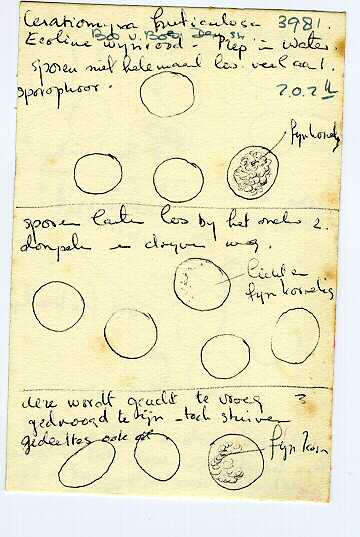 Ceratiomyxa fruticulosa 3981.
Ecoline wijnrood - Prep in water.
sporen niet helemaal los. veel aan 1.
sporophoor. 20.2
fijnkorrelig
sporen laten los bij het onder 2.
dompelen en drijven weg.
licht en
fijn korrelig
deze wordt geacht te vroeg 3
gedroogd te zijn - toch stuiven
gedeeltes ook af.
fijn korr